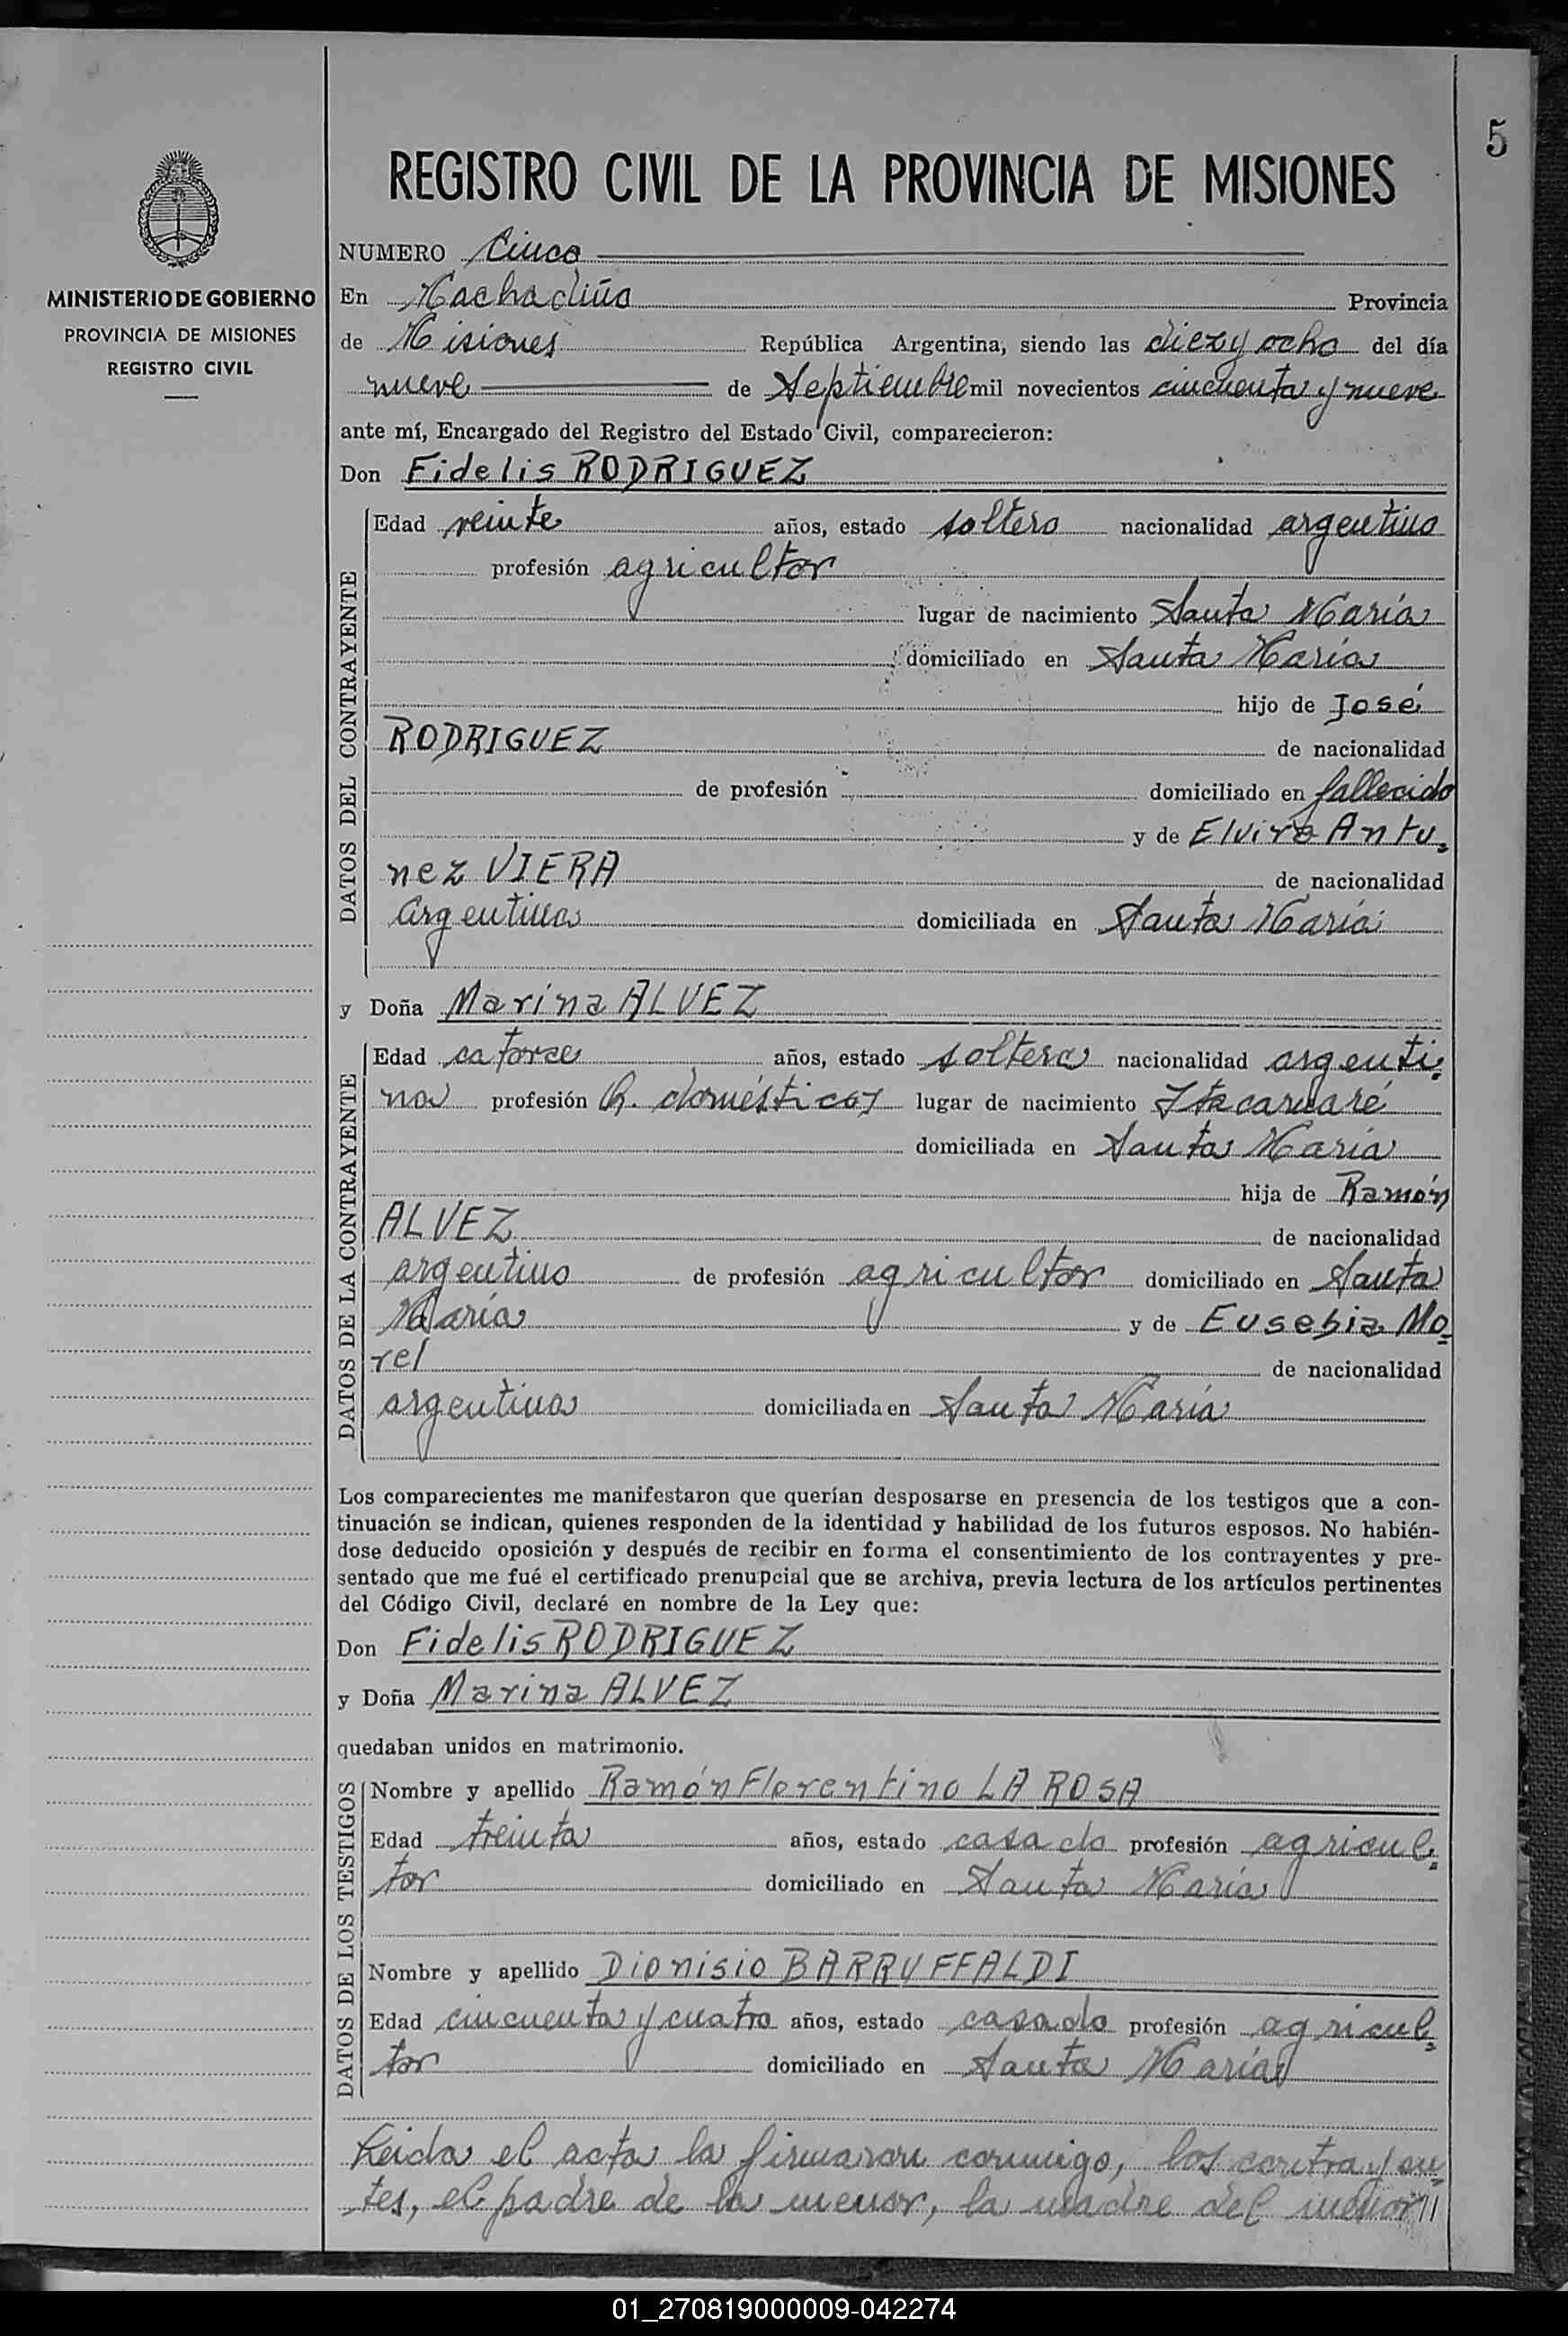 5
REGISTRO CIVIL DE LA PROVINCIA DE MISIONES
MINISTERIO DE GOBIERNO
PROVINCIA DE MISIONES
REGISTRO CIVIL
NUMERO Cinco
En Machadiño Provincia
de Misiones República Argentina, siendo las diez y ocho del día
nueve de Septiembre mil novecientos cincuenta y nueve
ante mí, Encargado del Registro del Estado Civil, comparecieron:
Don Fidelis RODRIGUEZ
DATOS DEL CONTRAYENTE
Edad veinte años, estado soltero nacionalidad argentino
profesión agricultor
lugar de nacimiento Santa María
domiciliado en Santa María
hijo de José
RODRIGUEZ de nacionalidad
de profesión domiciliado en fallecido
y de Elvira Antu-
nez VIERA de nacionalidad
argentina domiciliada en Santa María
y Doña Marina ALVEZ
DATOS DE LA CONTRAYENTE
Edad catorce años, estado soltera nacionalidad argenti-
na profesión Q. domésticos lugar de nacimiento Itacaruaré
domiciliada en Santa María
hija de Ramón
ALVEZ de nacionalidad
argentino de profesión agricultor domiciliado en Santa
María y de Eusebia Mo-
rel de nacionalidad
argentina domiciliada en Santa María
Los comparecientes me manifestaron que querían desposarse en presencia de los testigos que a con-
tinuación se indican, quienes responden de la identidad y habilidad de los futuros esposos. No habién-
dose deducido oposición y después de recibir en forma el consentimiento de los contrayentes y pre-
sentado que me fué el certificado prenupcial que se archiva, previa lectura de los artículos pertinentes
del Código Civil, declaré en nombre de la Ley que:
Don Fidelis RODRIGUEZ
y Doña Marina ALVEZ
quedaban unidos en matrimonio.
DATOS DE LOS TESTIGOS
Nombre y apellido Ramón Florentino LA ROSA
Edad treinta años, estado casado profesión agricul-
tor domiciliado en Santa María
Nombre y apellido Dionisio BARRUFFALDI
Edad cincuenta y cuatro años, estado casado profesión agricul-
tor domiciliado en Santa María
Leida el acta la firmaron conmigo, los contrayen-
tes, el padre de la menor, la madre del menor //
01_270819000009-042274